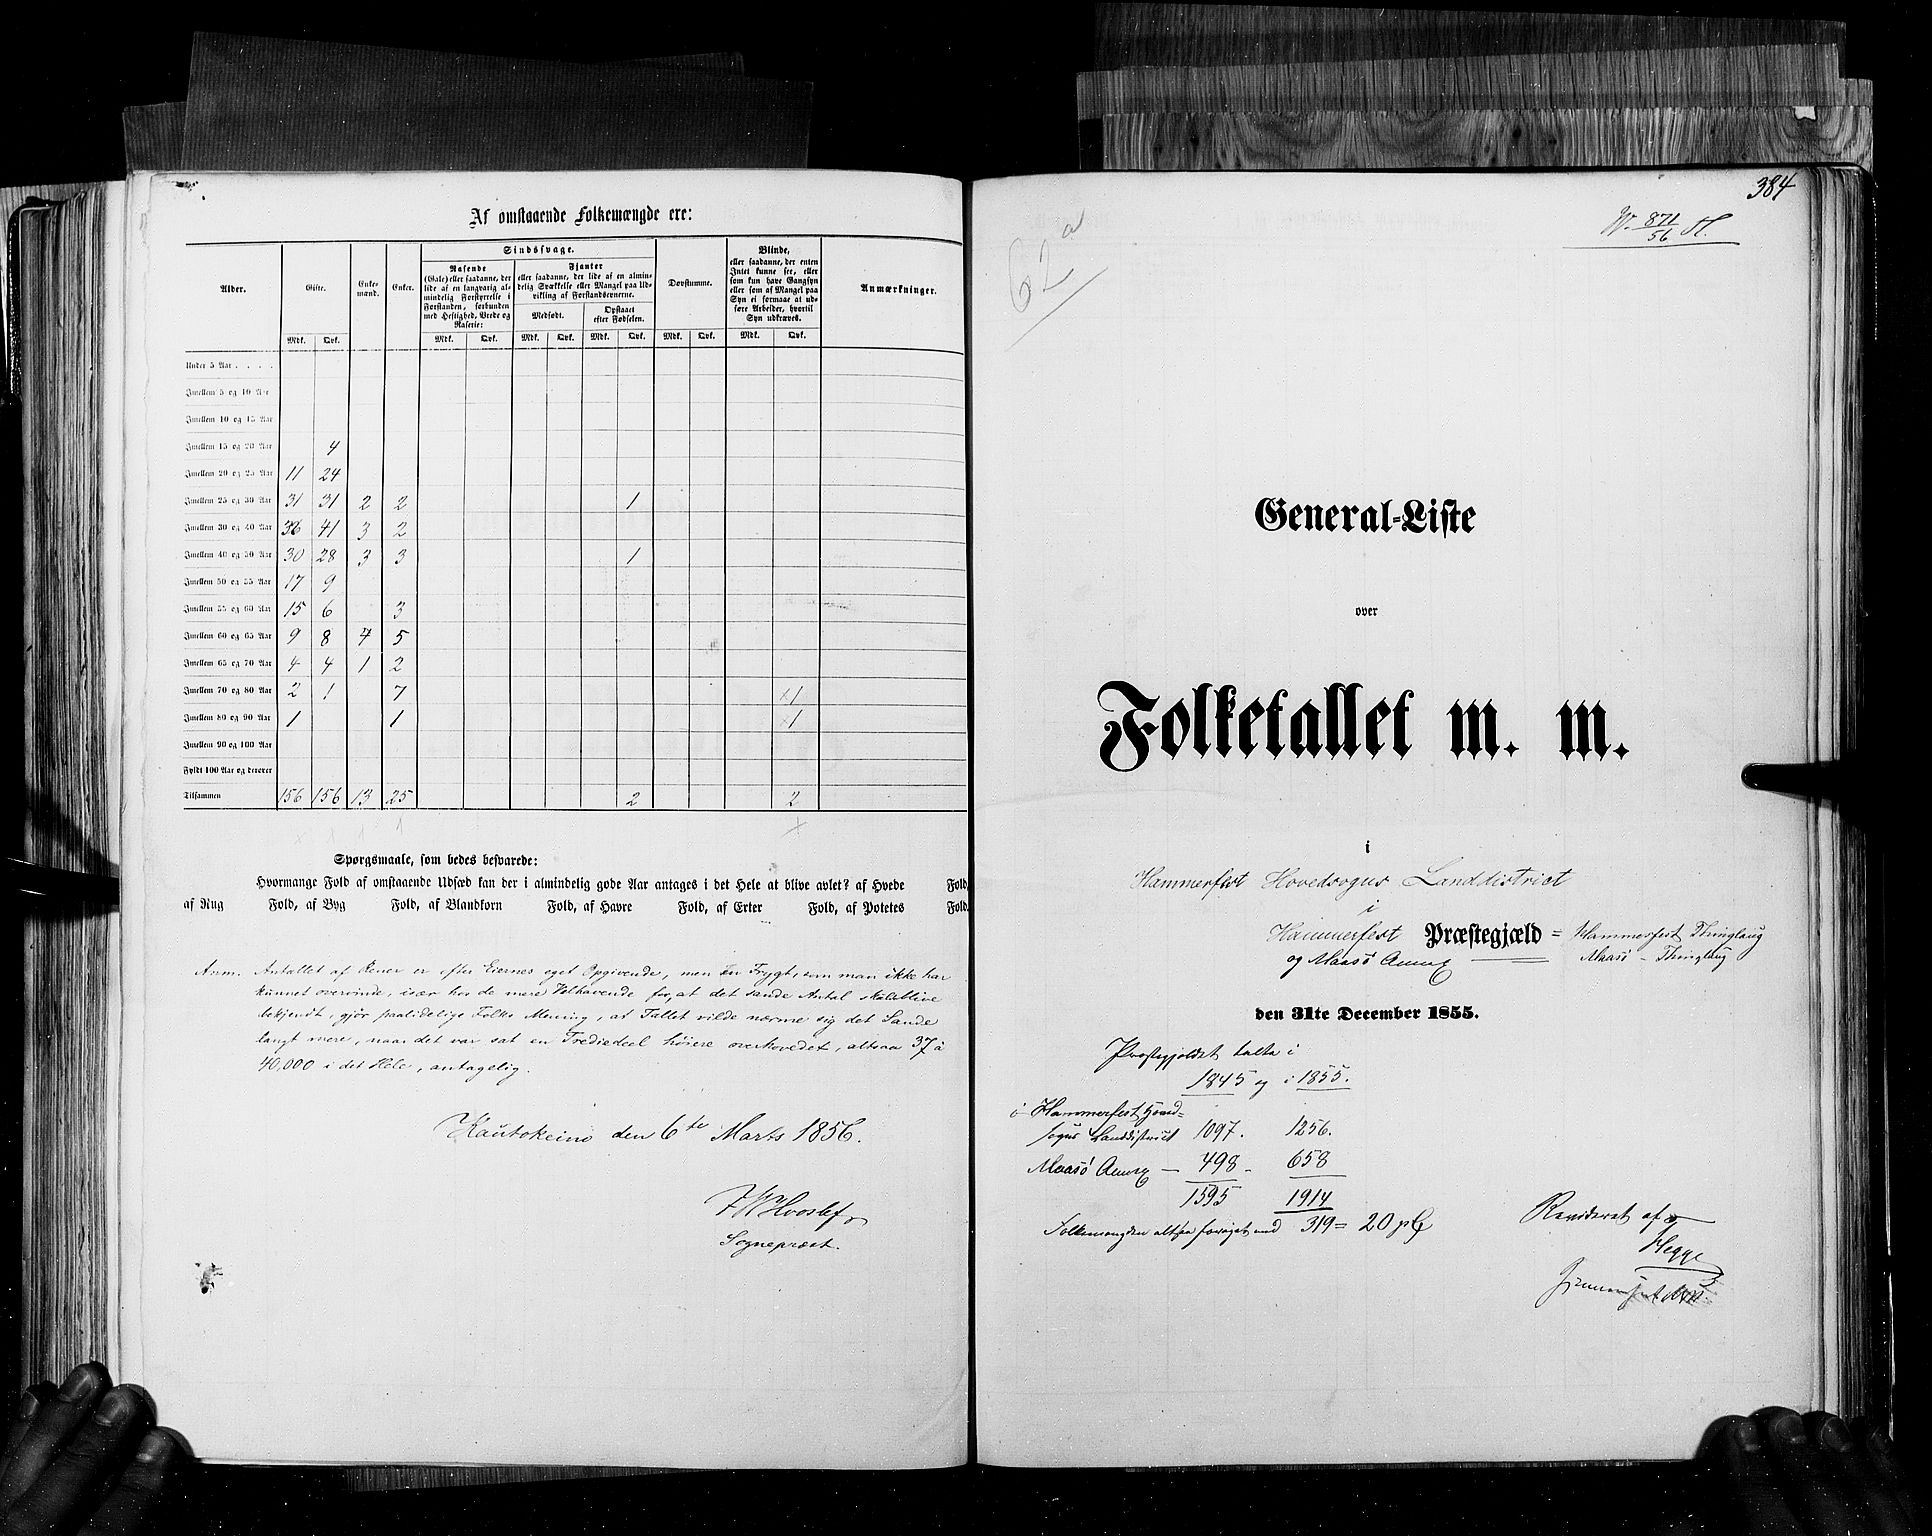 Af omstaaende Folkemængde ere:
Alder. Gifte. Enke-mænd. Enker. Sindssvage. Døvstumme. Blinde, Anmærkninger.
Rasende (Gale) eller saadanne, der lide af en langvarig almindelig Forstyrrelse i Forstanden, forbunden med Heftighed, Vrede og Raserie:
Fjanter eller saadanne, der lide af en almindelig Svækkelse eller Mangel paa Udvikling af Forstandsevnerne.
Medfødt. Opstaaet efter Fødselen.
eller saadanne, der enten Intet kunne see, eller som kun have Gangsyn eller som af Mangel paa Syn ei formaae at udføre Arbeider, hvortil Syn udkræves.
Mdk. Qvk. Mdk. Qvk. Mdk. Qvk. Mdk. Qvk. Mdk. Qvk. Mdk. Qvk.
Under 5 Aar . . . .
Imellem 5 og 10 Aar
Imellem 10 og 15 Aar
Imellem 15 og 20 Aar 4
Imellem 20 og 25 Aar 11 24
Imellem 25 og 30 Aar 31 31 2 2 1
Imellem 30 og 40 Aar 36 41 3 2
Imellem 40 og 50 Aar 30 28 3 3 1
Imellem 50 og 55 Aar 17 9
Imellem 55 og 60 Aar 15 6 3
Imellem 60 og 65 Aar 9 8 4 5
Imellem 65 og 70 Aar 4 4 1 2
Imellem 70 og 80 Aar 2 1 7 ×1
Imellem 80 og 90 Aar 1 1 ×1
Imellem 90 og 100 Aar
Fyldt 100 Aar og derover
Tilsammen 156 156 13 25 2 2
Spørgsmaale, som bedes besvarede:
Hvormange Fold af omstaaende Udsæd kan der i almindelig gode Aar antages i det Hele at blive avlet? af Hvede Fold,
af Rug Fold, af Byg Fold, af Blandkorn Fold, af Havre Fold, af Erter Fold, af Potetes Fold.
Anm. Antallet af Rener er efter Eiernes eget Opgivende, men en Frygt, som man ikke har
kunnet overvinde, især hos de mere Velhavende for, at det sande Antal skal blive
bekjendt, gjør paalidelige Folks Mening, at Tallet vilde nærme sig det Sande
langt mere, naar det var sat en Trediedeel høiere overhovedet, altsaa 37 à
40,000 i det Hele, antagelig.
Kautokeino den 6te Marts 1856.
Hvoslef
Sognepræst.
384
W. 871/56 H.
62 a
General-Liste
over
Folketallet m. m.
i
Hammerfest Hovedsogns Landdistrict
i
Hammerfest Præstegjæld = Hammerfest Thinglaug
og Maasö Annex Maasö - Thinglaug
den 31te December 1855.
Præstegjeldet talte i
1845 og i 1855.
i Hammerfest Hoved-
sogns Landdistrict 1097. 1256.
Maasö Annex — 498 - 658
1595 1914
Folkemængden altsaa forøget med 319 = 20 pC
Revideret af
Hegge